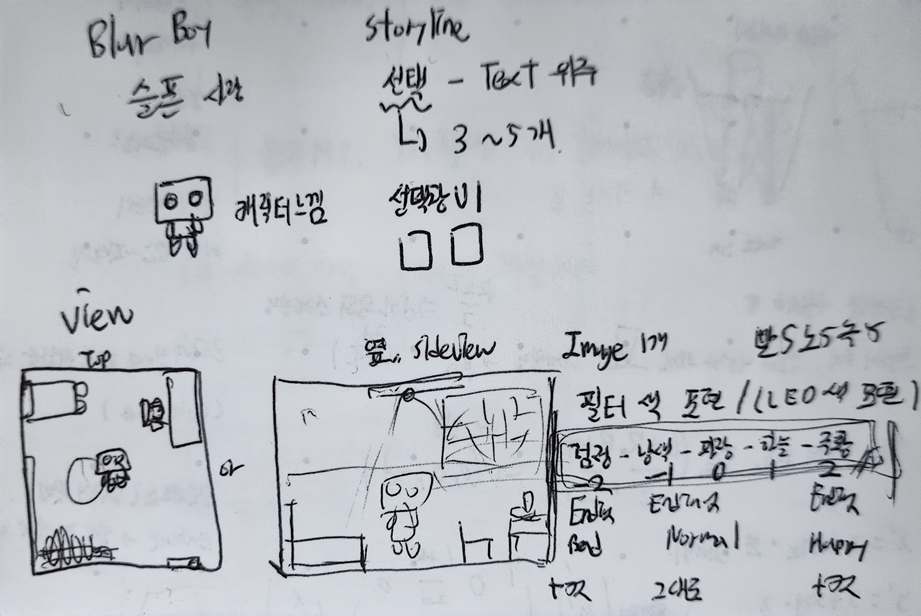 Blur Boy
슬픈 시작
Storyline
선택 - Text 위주
3 ~ 5개
캐릭터 느낌
선택창 UI
View
Top
or
옆.. Sideview
Image 1개
빨 5 노 5 녹 5
필터 색 표현 / (LED 색 표현)
검정 - 남색 - 파랑 - 하늘 -
-2 -1 0 1 2
엔딩
Bad Normal Happy
그대로